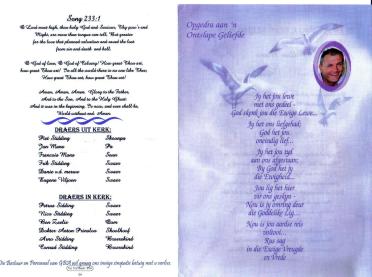 Song 233:1
O Lord most high, thou holy God and Saviour, Thy pow'r and
Might, are more than tongue can tell, But greater
for the love that planned salvation and saved the lost
from sin and death and hell.
O God of love, O God of Calvary! How great Thou art,
how great Thou art! In all the world there is no one like Thee,
How great Thou art, how great Thou art!
Amen, Amen, Amen, Glory to the Father,
And to the Son, And to the Holy Ghost
And it was in the beginning, Is now, and ever shall be,
World without end. Amen
DRAERS UIT KERK:
Piet Sidding Skoonpa
Jan Mans Pa
Francois Mans Swaer
Faik Sidding Swaer
Danie v.d. merwe Swaer
Eugene Viljoen Swaer
DRAERS IN KERK:
Petrus Sidding Swaer
Nico Sidding Swaer
Ben Zeelie Oom
Dokter Anton Prinsloo Skoolhoof
Arno Sidding Broerskind
Carusel Sidding Broerskind
Die Bestuur en Personeel van GBA wil graag ons innige simpatie betuig met u verlies.
Opgedra aan 'n
Ontslape Geliefde
Jy het jou lewe
met ons gedeel -
God skenk jou die Ewige Lewe...
Jy het ons liefgehad;
God het jou
oneindig lief...
Jy het jou tyd
aan ons afgestaan;
By God het jy
die Ewigheid...
Jou lig het hier
vir ons geskyn -
Nou is jy omring deur
die Goddelike Lig...
Nou is jou aardse reis
voltooi...
Rus sag
in die Ewige Vreugde
en Vrede